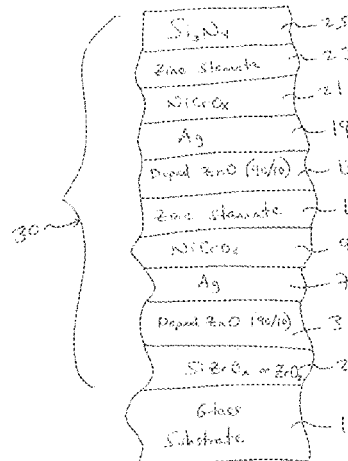 Si₃N₄ 25
Zinc Stannate 23
NiCrOx 21
Ag 19
Doped ZnO (90/10) 1
Zinc Stannate 1
30
NiCrOx 9
Ag 7
Doped ZnO (90/10) 3
SiZrOx or ZrO₂ 2
Glass
Substrate 1